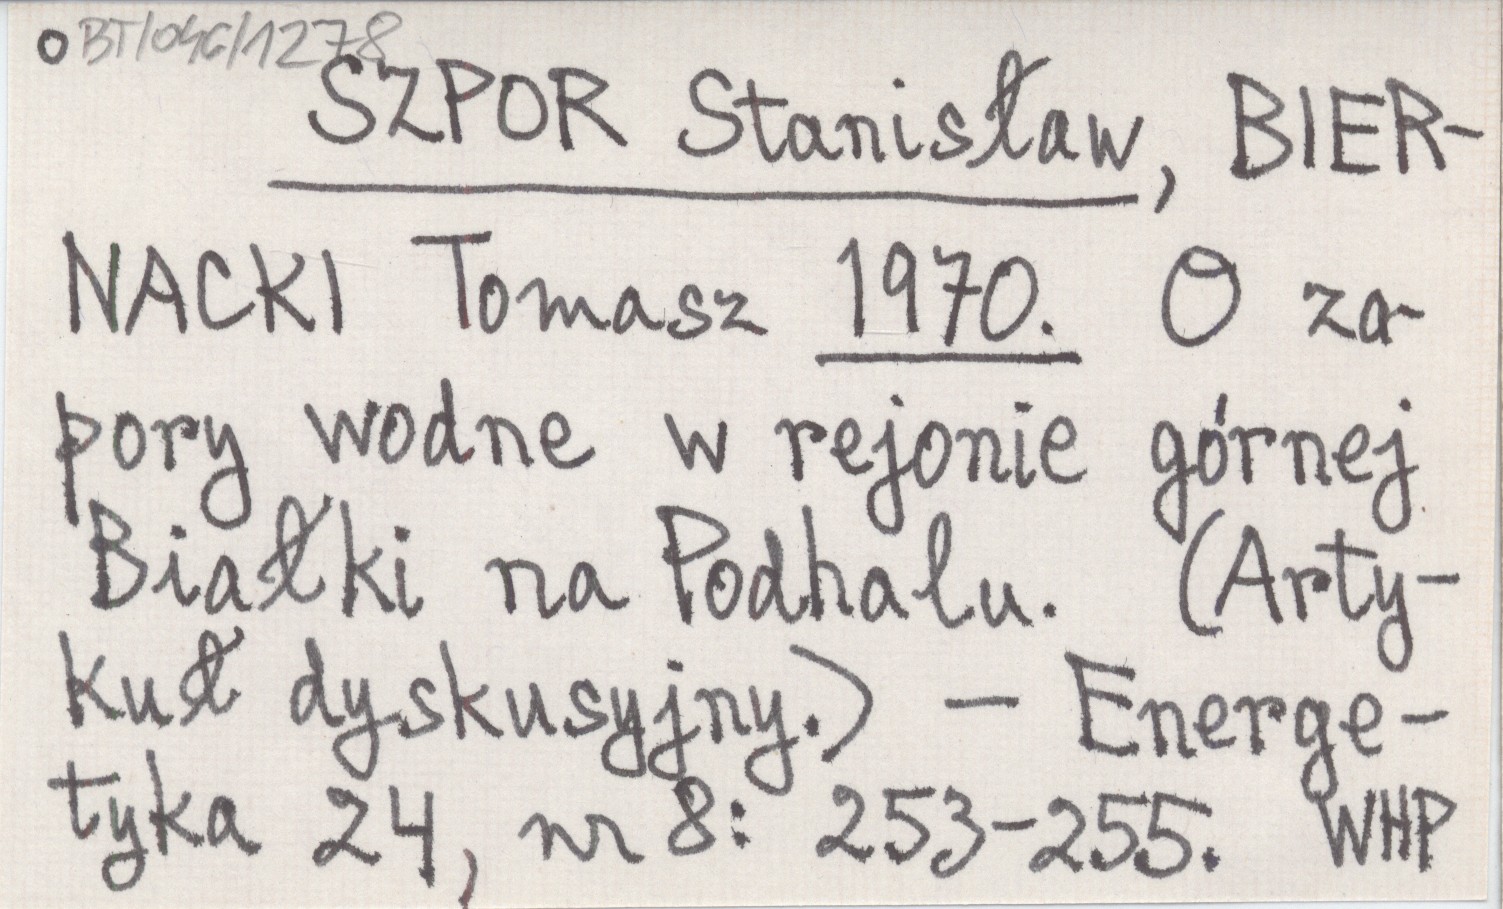 o BT/046/1278
SZPOR Stanisław, BIER-
NACKI Tomasz 1970. O za-
pory wodne w rejonie górnej
Białki na Podhalu. (Arty-
kuł dyskusyjny.) – Energe-
tyka 24, nr 8: 253-255. WHP